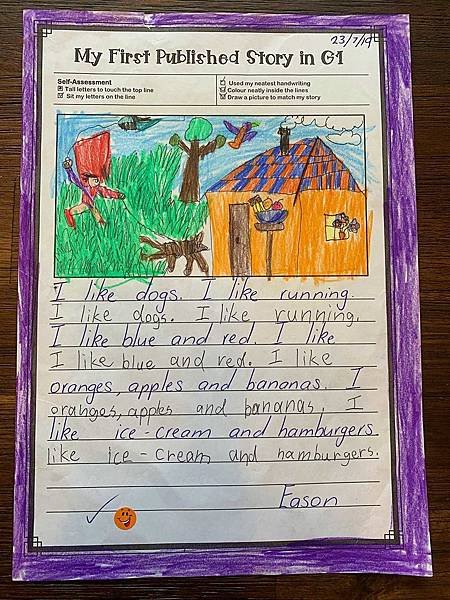 23/7/19
My First Published Story in G1
Self-Assessment
Tall letters to touch the top line
Sit my letters on the line
Used my neatest handwriting
Colour neatly inside the lines
Draw a picture to match my story
I like dogs. I like running.
I like dogs. I like running.
I like blue and red. I like
I like blue and red. I like
oranges, apples and bananas. I
oranges, apples and bananas. I
like ice-cream and hamburgers
like ice-cream and hamburgers.
Eason